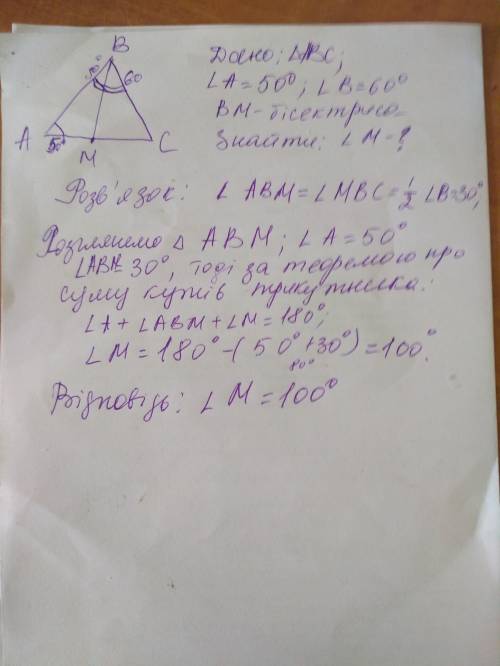 B
30° 60
A 50° M C
Дано: △ABC;
∠A = 50°; ∠B = 60°
BM - бісектриса
Знайти: ∠M = ?
Розв'язок: ∠ABM = ∠MBC = 1/2 ∠B = 30°;
Розглянемо △ ABM; ∠A = 50°
∠ABM = 30°, тоді за теоремою про
суму кутів трикутника:
∠A + ∠ABM + ∠M = 180°;
∠M = 180° - (50° + 30°) = 100°.
80°
Відповідь: ∠M = 100°